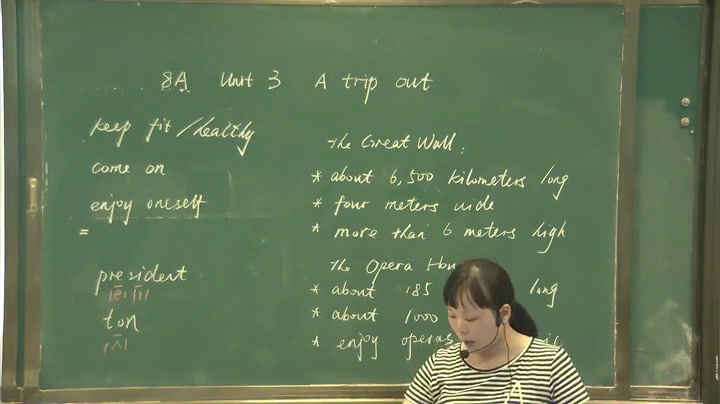 8A Unit 3 A trip out
keep fit / healthy
come on
enjoy oneself
=
president
/e/ /ɪ/
ton
/ʌ/
The Great Wall:
* about 6,500 kilometers long
* four meters wide
* more than 6 meters high
The Opera
* about 185 long
* about 1000
* enjoy operas